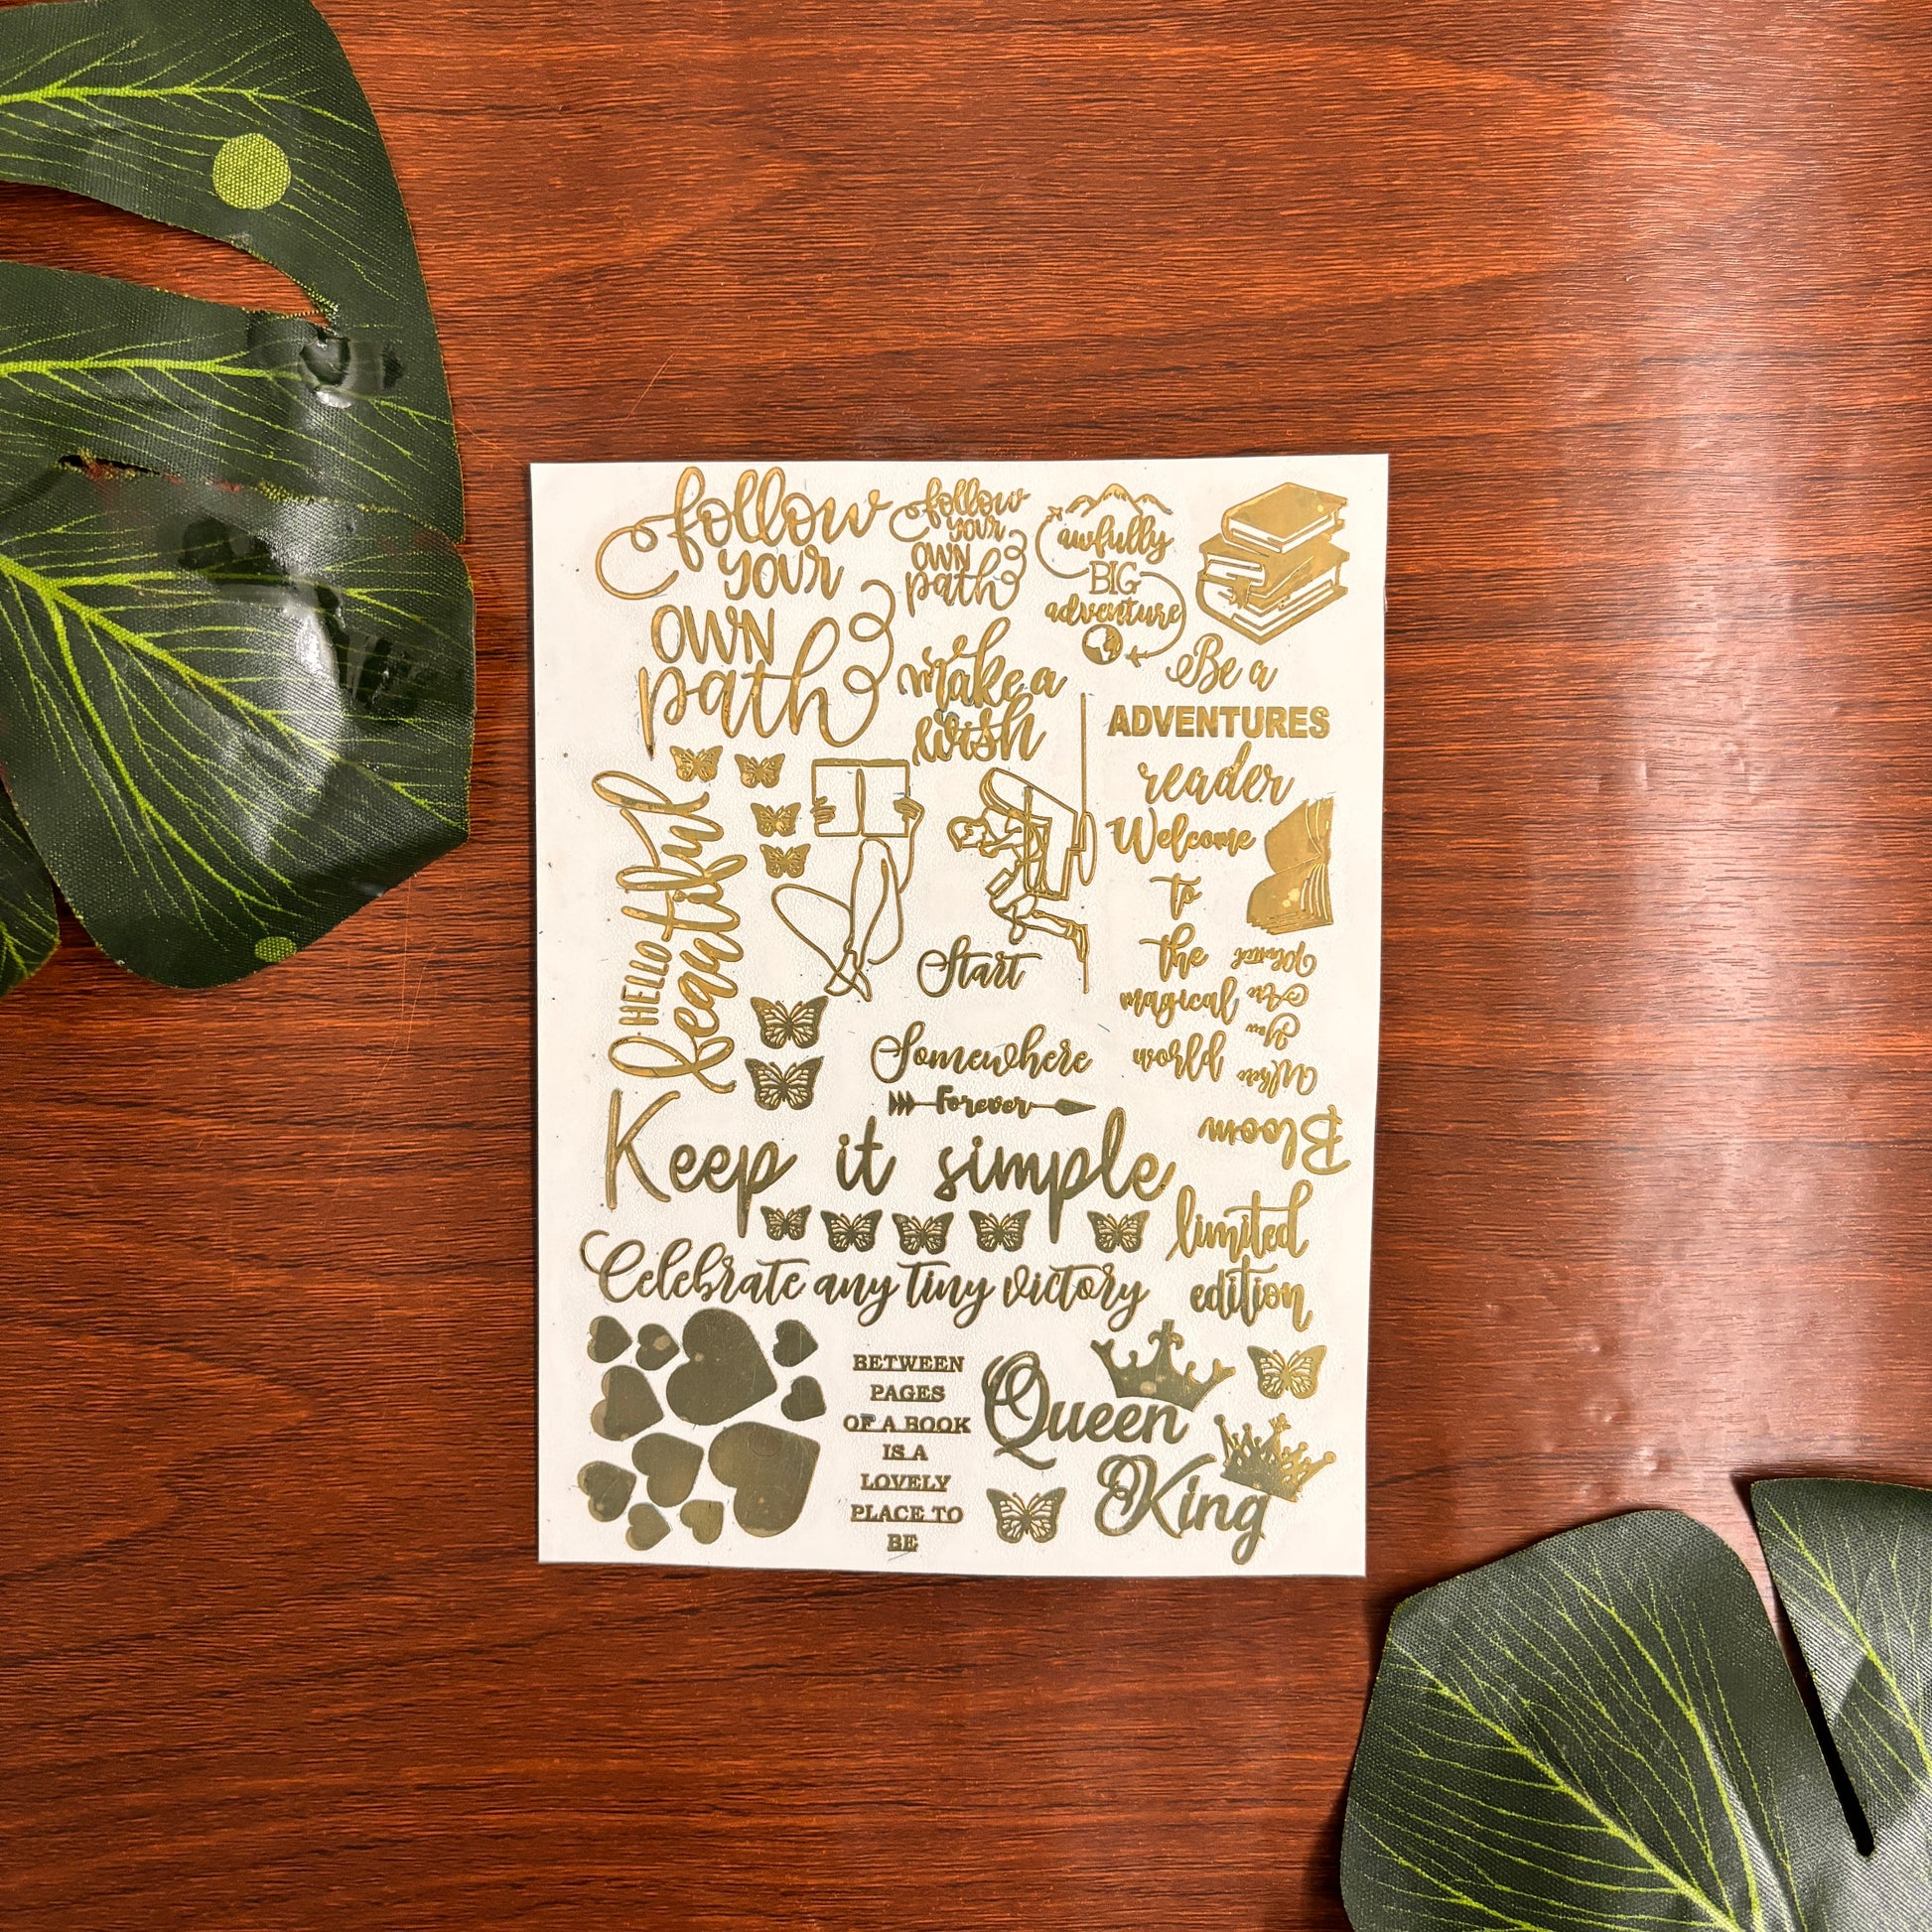 follow
your
OWN
path
follow
your
OWN
path
awfully
BIG
adventure
Be a
ADVENTURES
reader
make a
wish
HELLO
beautiful
Welcome
to
the
magical
world
Start
Somewhere
Forever
Bloom
Where
You
Are
Planted
Keep it simple
limited
edition
Celebrate any tiny victory
BETWEEN
PAGES
OF A BOOK
IS A
LOVELY
PLACE TO
BE
Queen
King